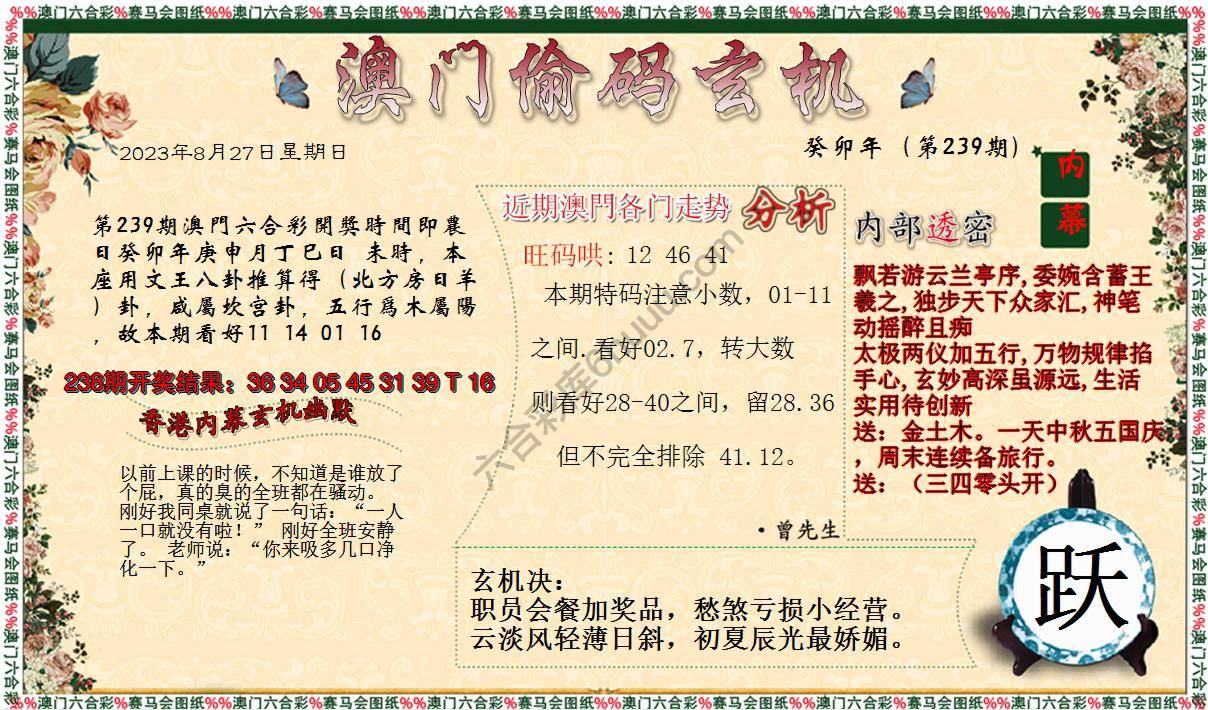 %%澳门六合彩%赛马会图纸%%澳门六合彩%赛马会图纸%%澳门六合彩%赛马会图纸%%澳门六合彩%赛马会图纸%%澳门六合彩%赛马会图纸%%澳门六合彩%赛马会图纸%%
澳门偷码玄机
2023年8月27日星期日
癸卯年（第239期）
内
幕
第239期澳門六合彩開獎時間即農
日癸卯年庚申月丁巳日 未時，本
座用文王八卦推算得（北方房日羊
）卦，咸屬坎宫卦，五行爲木屬陽
，故本期看好11 14 01 16
238期开奖结果：36 34 05 45 31 39 T 16
香港内幕玄机幽默
以前上课的时候，不知道是谁放了
个屁，真的臭的全班都在骚动。
刚好我同桌就说了一句话：“一人
一口就没有啦！” 刚好全班安静
了。 老师说：“你来吸多几口净
化一下。”
近期澳門各门走势 分析
旺码哄: 12 46 41
本期特码注意小数，01-11
之间.看好02.7，转大数
则看好28-40之间，留28.36
但不完全排除 41.12。
·曾先生
内部透密
飘若游云兰亭序,委婉含蓄王
羲之,独步天下众家汇,神笔
动摇醉且痴
太极两仪加五行,万物规律掐
手心,玄妙高深虽源远,生活
实用待创新
送：金土木。一天中秋五国庆
，周末连续备旅行。
送：（三四零头开）
玄机决：
职员会餐加奖品，愁煞亏损小经营。
云淡风轻薄日斜，初夏辰光最娇媚。
跃
%%澳门六合彩%赛马会图纸%%澳门六合彩%赛马会图纸%%澳门六合彩%赛马会图纸%%澳门六合彩%赛马会图纸%%澳门六合彩%赛马会图纸%%澳门六合彩%赛马会图纸%%